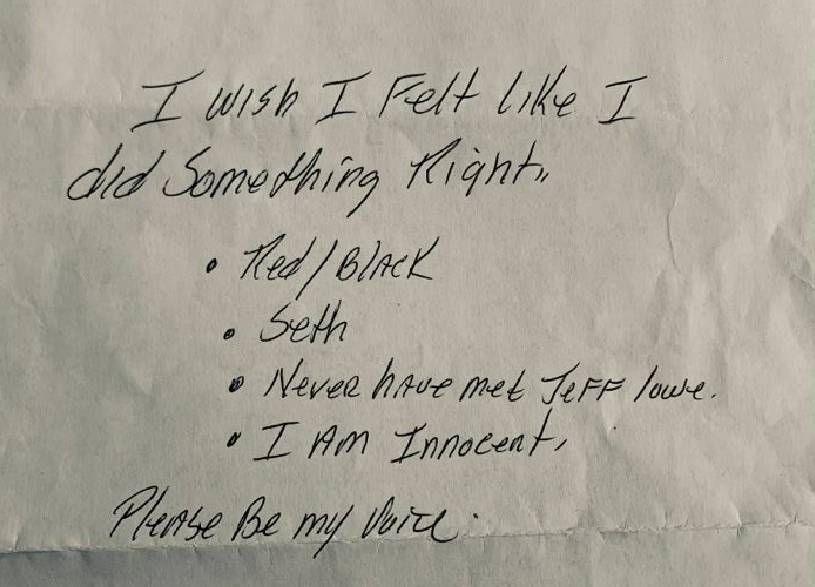 I wish I Felt like I
did Something Right,,
• Red/Black
• Seth
• Never have met Jeff lowe.
• I Am Innocent,
Please Be my Voice.